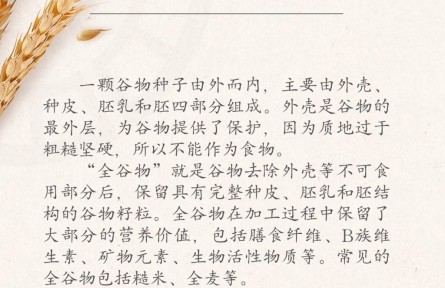 一颗谷物种子由外而内，主要由外壳、
种皮、胚乳和胚四部分组成。外壳是谷物的
最外层，为谷物提供了保护，因为质地过于
粗糙坚硬，所以不能作为食物。
“全谷物”就是谷物去除外壳等不可食
用部分后，保留具有完整种皮、胚乳和胚结
构的谷物籽粒。全谷物在加工过程中保留了
大部分的营养价值，包括膳食纤维、B族维
生素、矿物元素、生物活性物质等。常见的
全谷物包括糙米、全麦等。